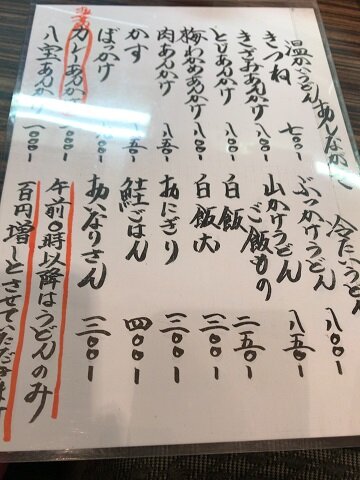 おしながき
温かいうどん
きつね 七〇〇-
きざみあんかけ 八〇〇-
とりあんかけ 八〇〇-
梅わかめあんかけ 八〇〇-
肉あんかけ 八五〇-
かす 八五〇-
ばっかけ 九〇〇-
カレーあんかけ 一〇〇〇-
八宝あんかけ 一〇〇〇-
冷たいうどん
ぶっかけうどん 八〇〇-
山かけうどん 八五〇-
ご飯もの
白飯 二五〇-
白飯大 三〇〇-
おにぎり 三〇〇-
鮭ごはん 四〇〇-
おいなりさん 三〇〇-
午前0時以降はうどんのみ
百円増しとさせていただきます